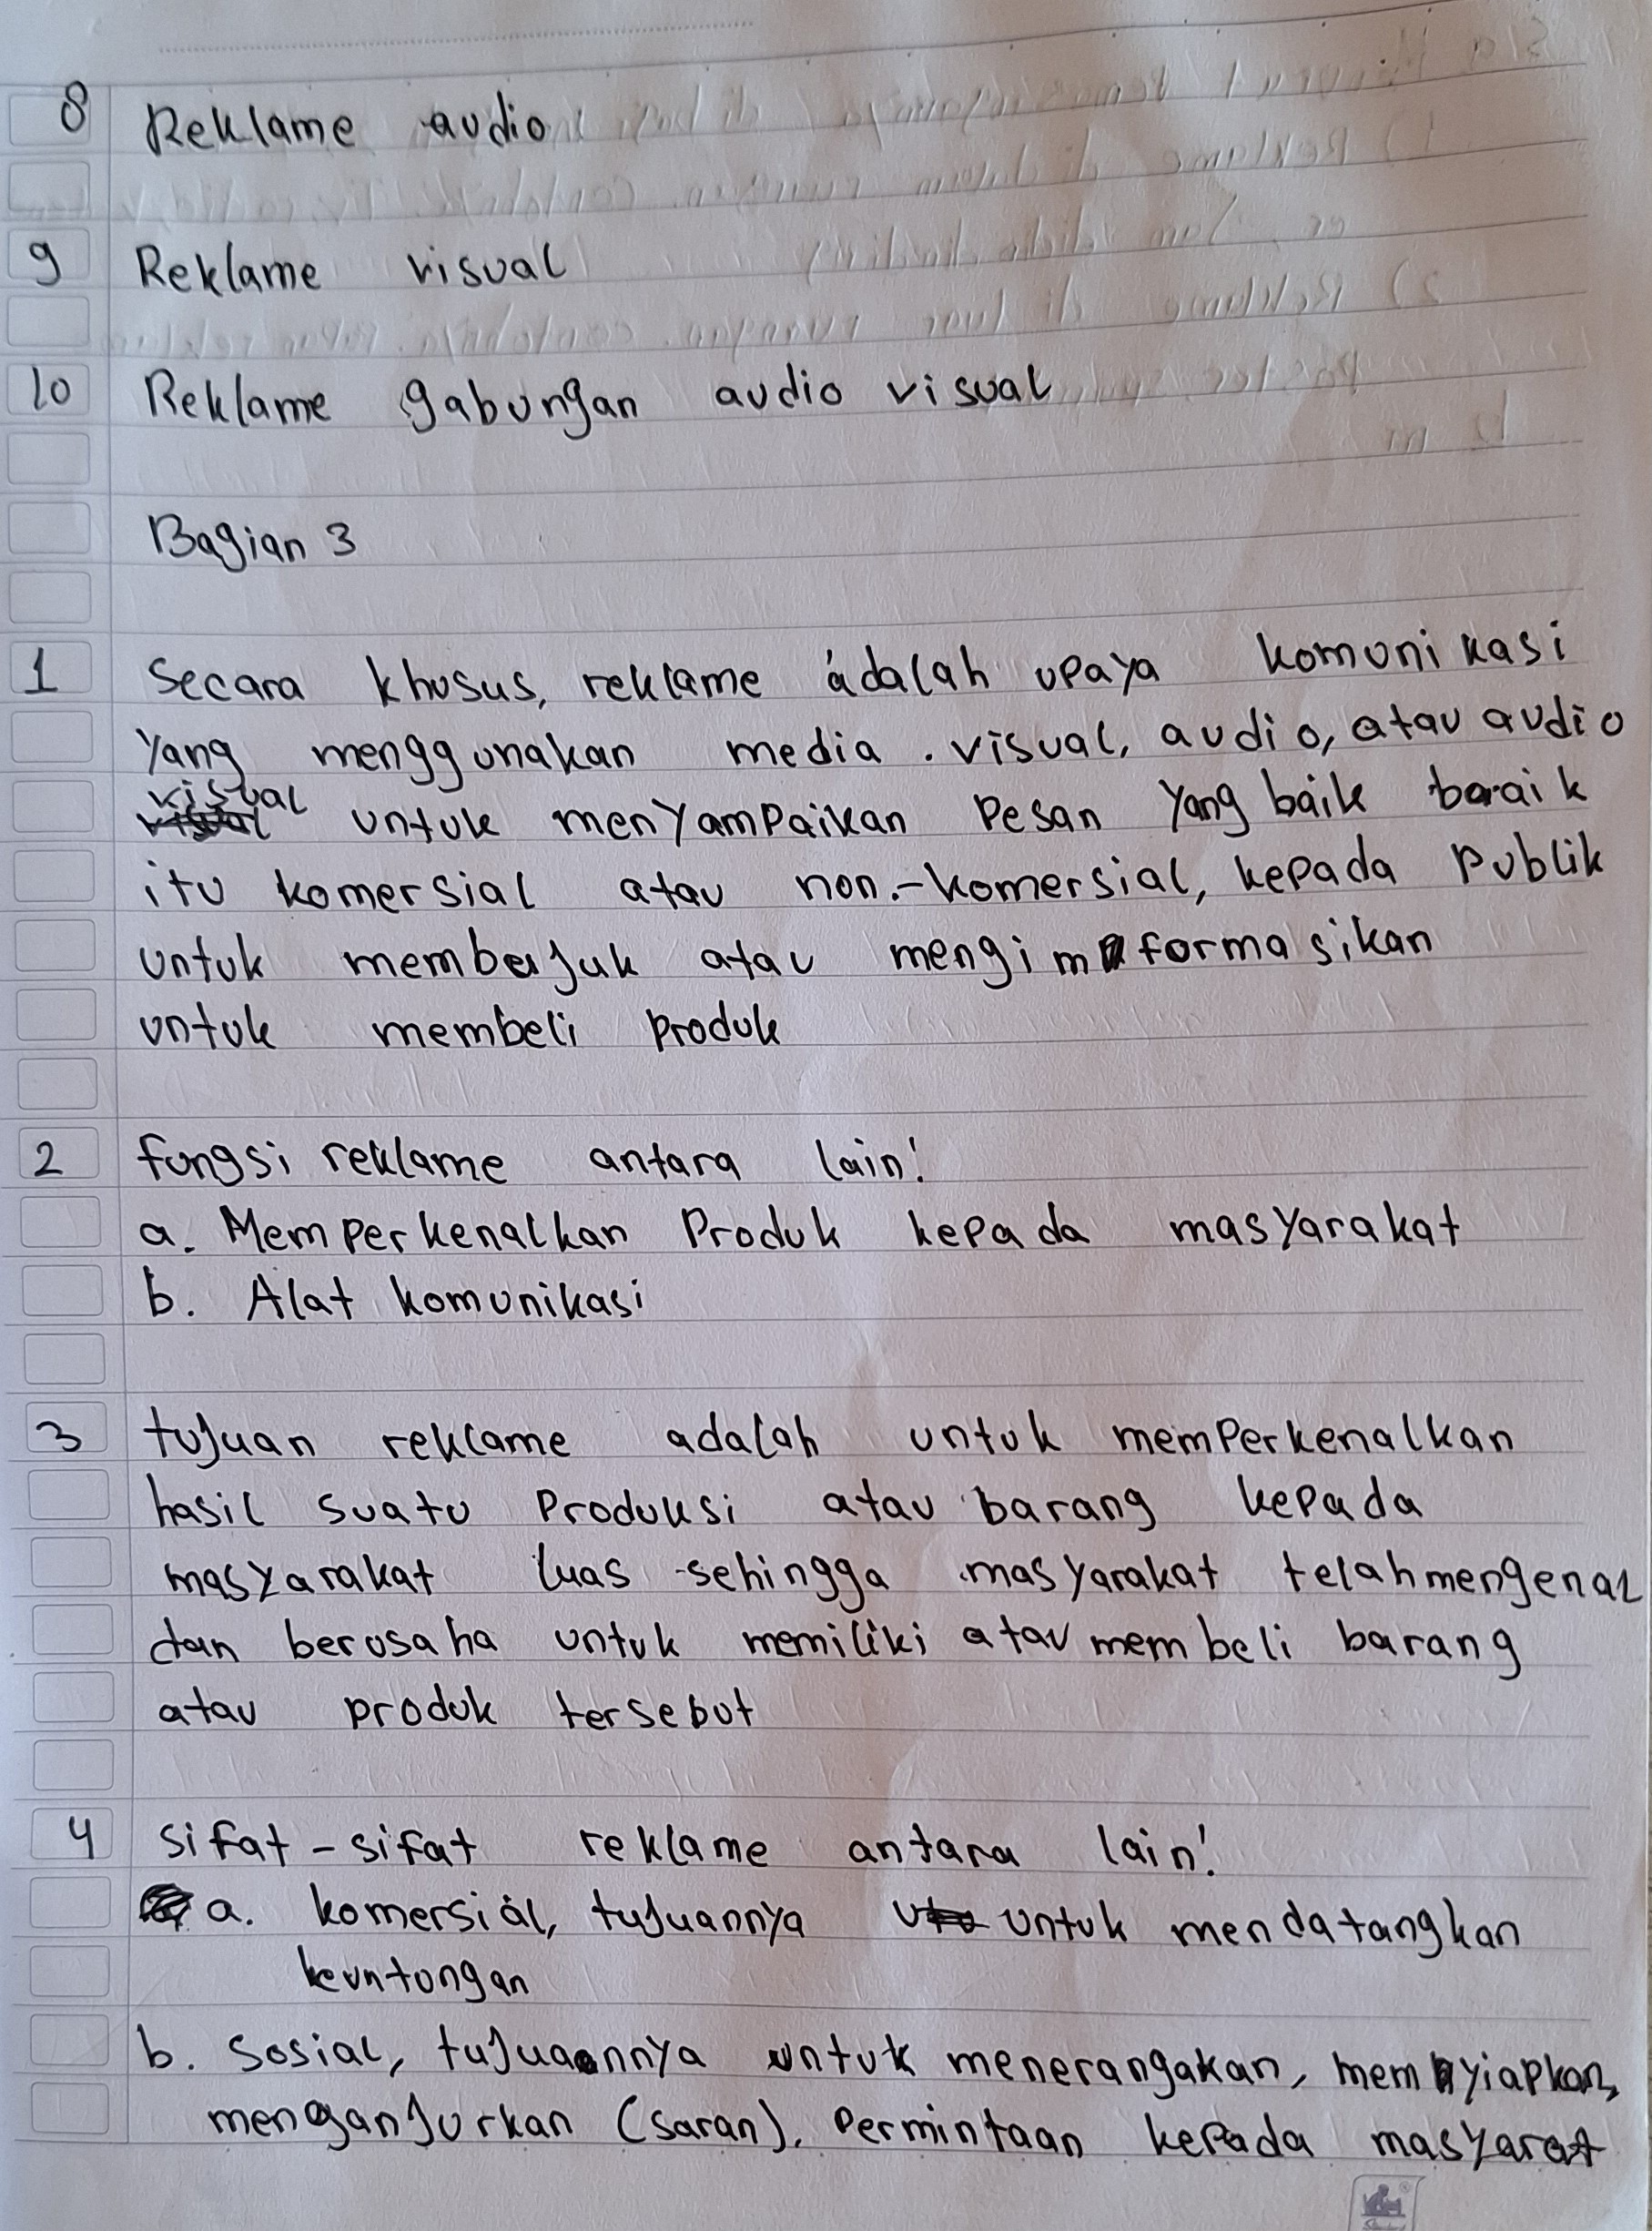 8 Reklame audio
9 Reklame visual
10 Reklame gabungan audio visual
Bagian 3
1 Secara khusus, reklame adalah upaya komunikasi
yang menggunakan media . visual, audio, atau audio
visual untuk menyampaikan pesan yang baik baraik
itu komersial atau non.-komersial, kepada publik
untuk memberjuk atau mengimformasikan
untuk membeli produk
2 fungsi reklame antara lain!
a. Memperkenalkan Produk kepada masyarakat
b. Alat komunikasi
3 tujuan reklame adalah untuk memperkenalkan
hasil suatu Produksi atau barang kepada
masyarakat luas sehingga masyarakat telah mengenal
dan berusaha untuk memiliki atau membeli barang
atau produk tersebut
4 sifat-sifat reklame antara lain!
a. komersial, tujuannya untuk mendatangkan
keuntungan
b. Sosial, tujuannya untuk menerangakan, memnyiapkan,
menganjurkan (saran), Permintaan kepada masyarat